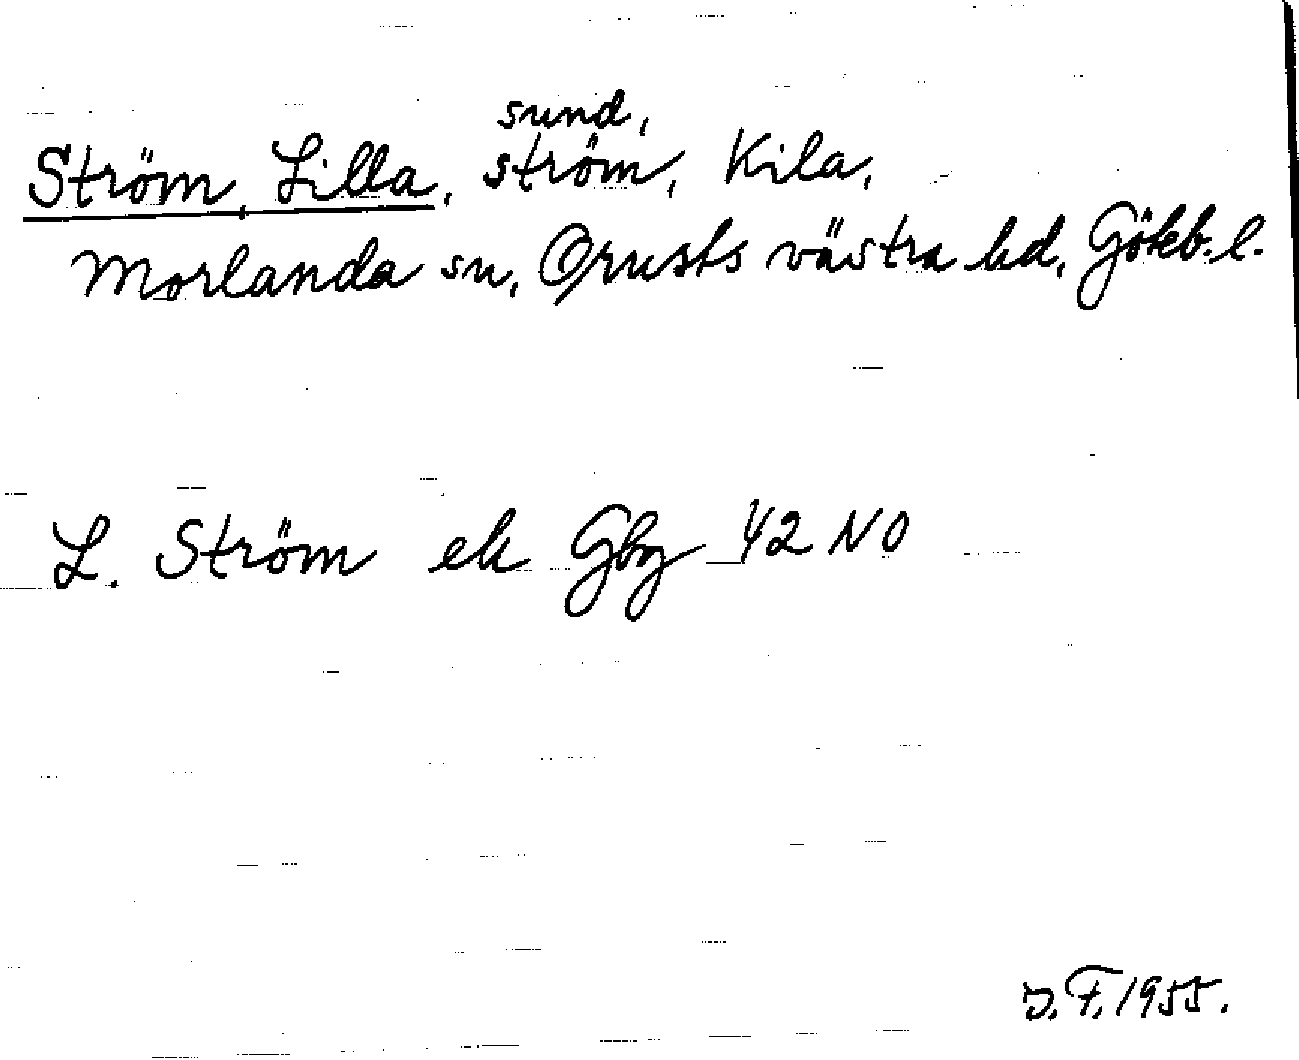 sund,
Ström, Lilla, ström, Kila,
Morlanda sn, Orusts västra hd, Göteb. l.
L. Ström ek Gbg 42 NO
J. F. 1955.